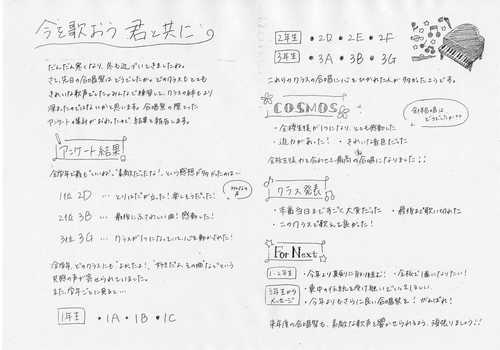 今を歌おう 君と共に
だんだん寒くなり、冬も近づいてきましたね。
さて、先日の合唱祭はどうでしたか。どのクラスもとても
きれいな歌声でしたね。みんなで練習して、クラスの絆もより
深まったのではないかと思います。合唱祭の際にとった
アンケートの集計がおわったので結果を報告します。
アンケート結果
全学年で最も“いいね”“素敵だった”など、という感想が多かったのは…
1位 2D … とりはだが立った! 楽しそうだった!
2位 3B … 最後にふさわしい曲! 感動した!
3位 3G … クラスが1つになっていて心を動かされた!
みんなの声
全学年、どのクラスにも“よかったよ!”、“好きだよ、その曲”などという
共感の声が寄せられていました。
また、今年ごとに見ると…
1年生 ・1A ・1B ・1C
2年生 ・2D ・2E ・2F
3年生 ・3A ・3B ・3G
これらのクラスの合唱に心をひかれた人が多かったようです。
COSMOS
全体合唱はどうでしたか??
・全校生徒が1つになり、とても感動した
・迫力があった! ・きれいな音色だった
全校生徒が力を合わせて、最高の合唱になりました!!
クラス発表
・本番当日まですごく大変だった ・最後まで歌い切れた
・このクラスで歌えて良かった!
For Next
1・2年生 ・今年より真剣に取り組む! ・全校で1番になりたい!
3年生からメッセージ ・東中の伝統を受け継いでいってほしい
・今年よりもさらに良い合唱祭を! がんばれ!
来年度の合唱祭も、素敵な歌声を響かせられるよう、頑張りましょう!!